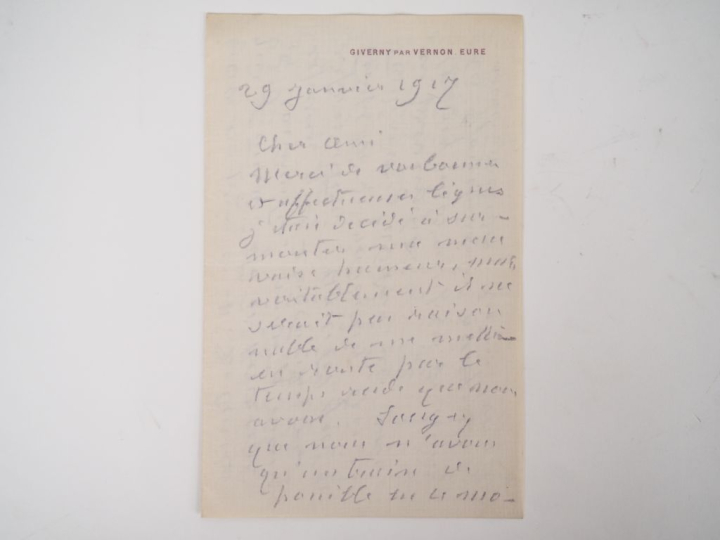 GIVERNY PAR VERNON. EURE
29 janvier 1917
Cher ami
Merci de vos bonnes
et affectueuses lignes
j'étais décidé à sur-
monter ma mau
vaise humeur, mais
véritablement il ne
serait pas raison
nable de me mettre
en route par le
temps rude que nous
avons. Songez
que nous n'avons
qu'un train de
possible en ce mo-